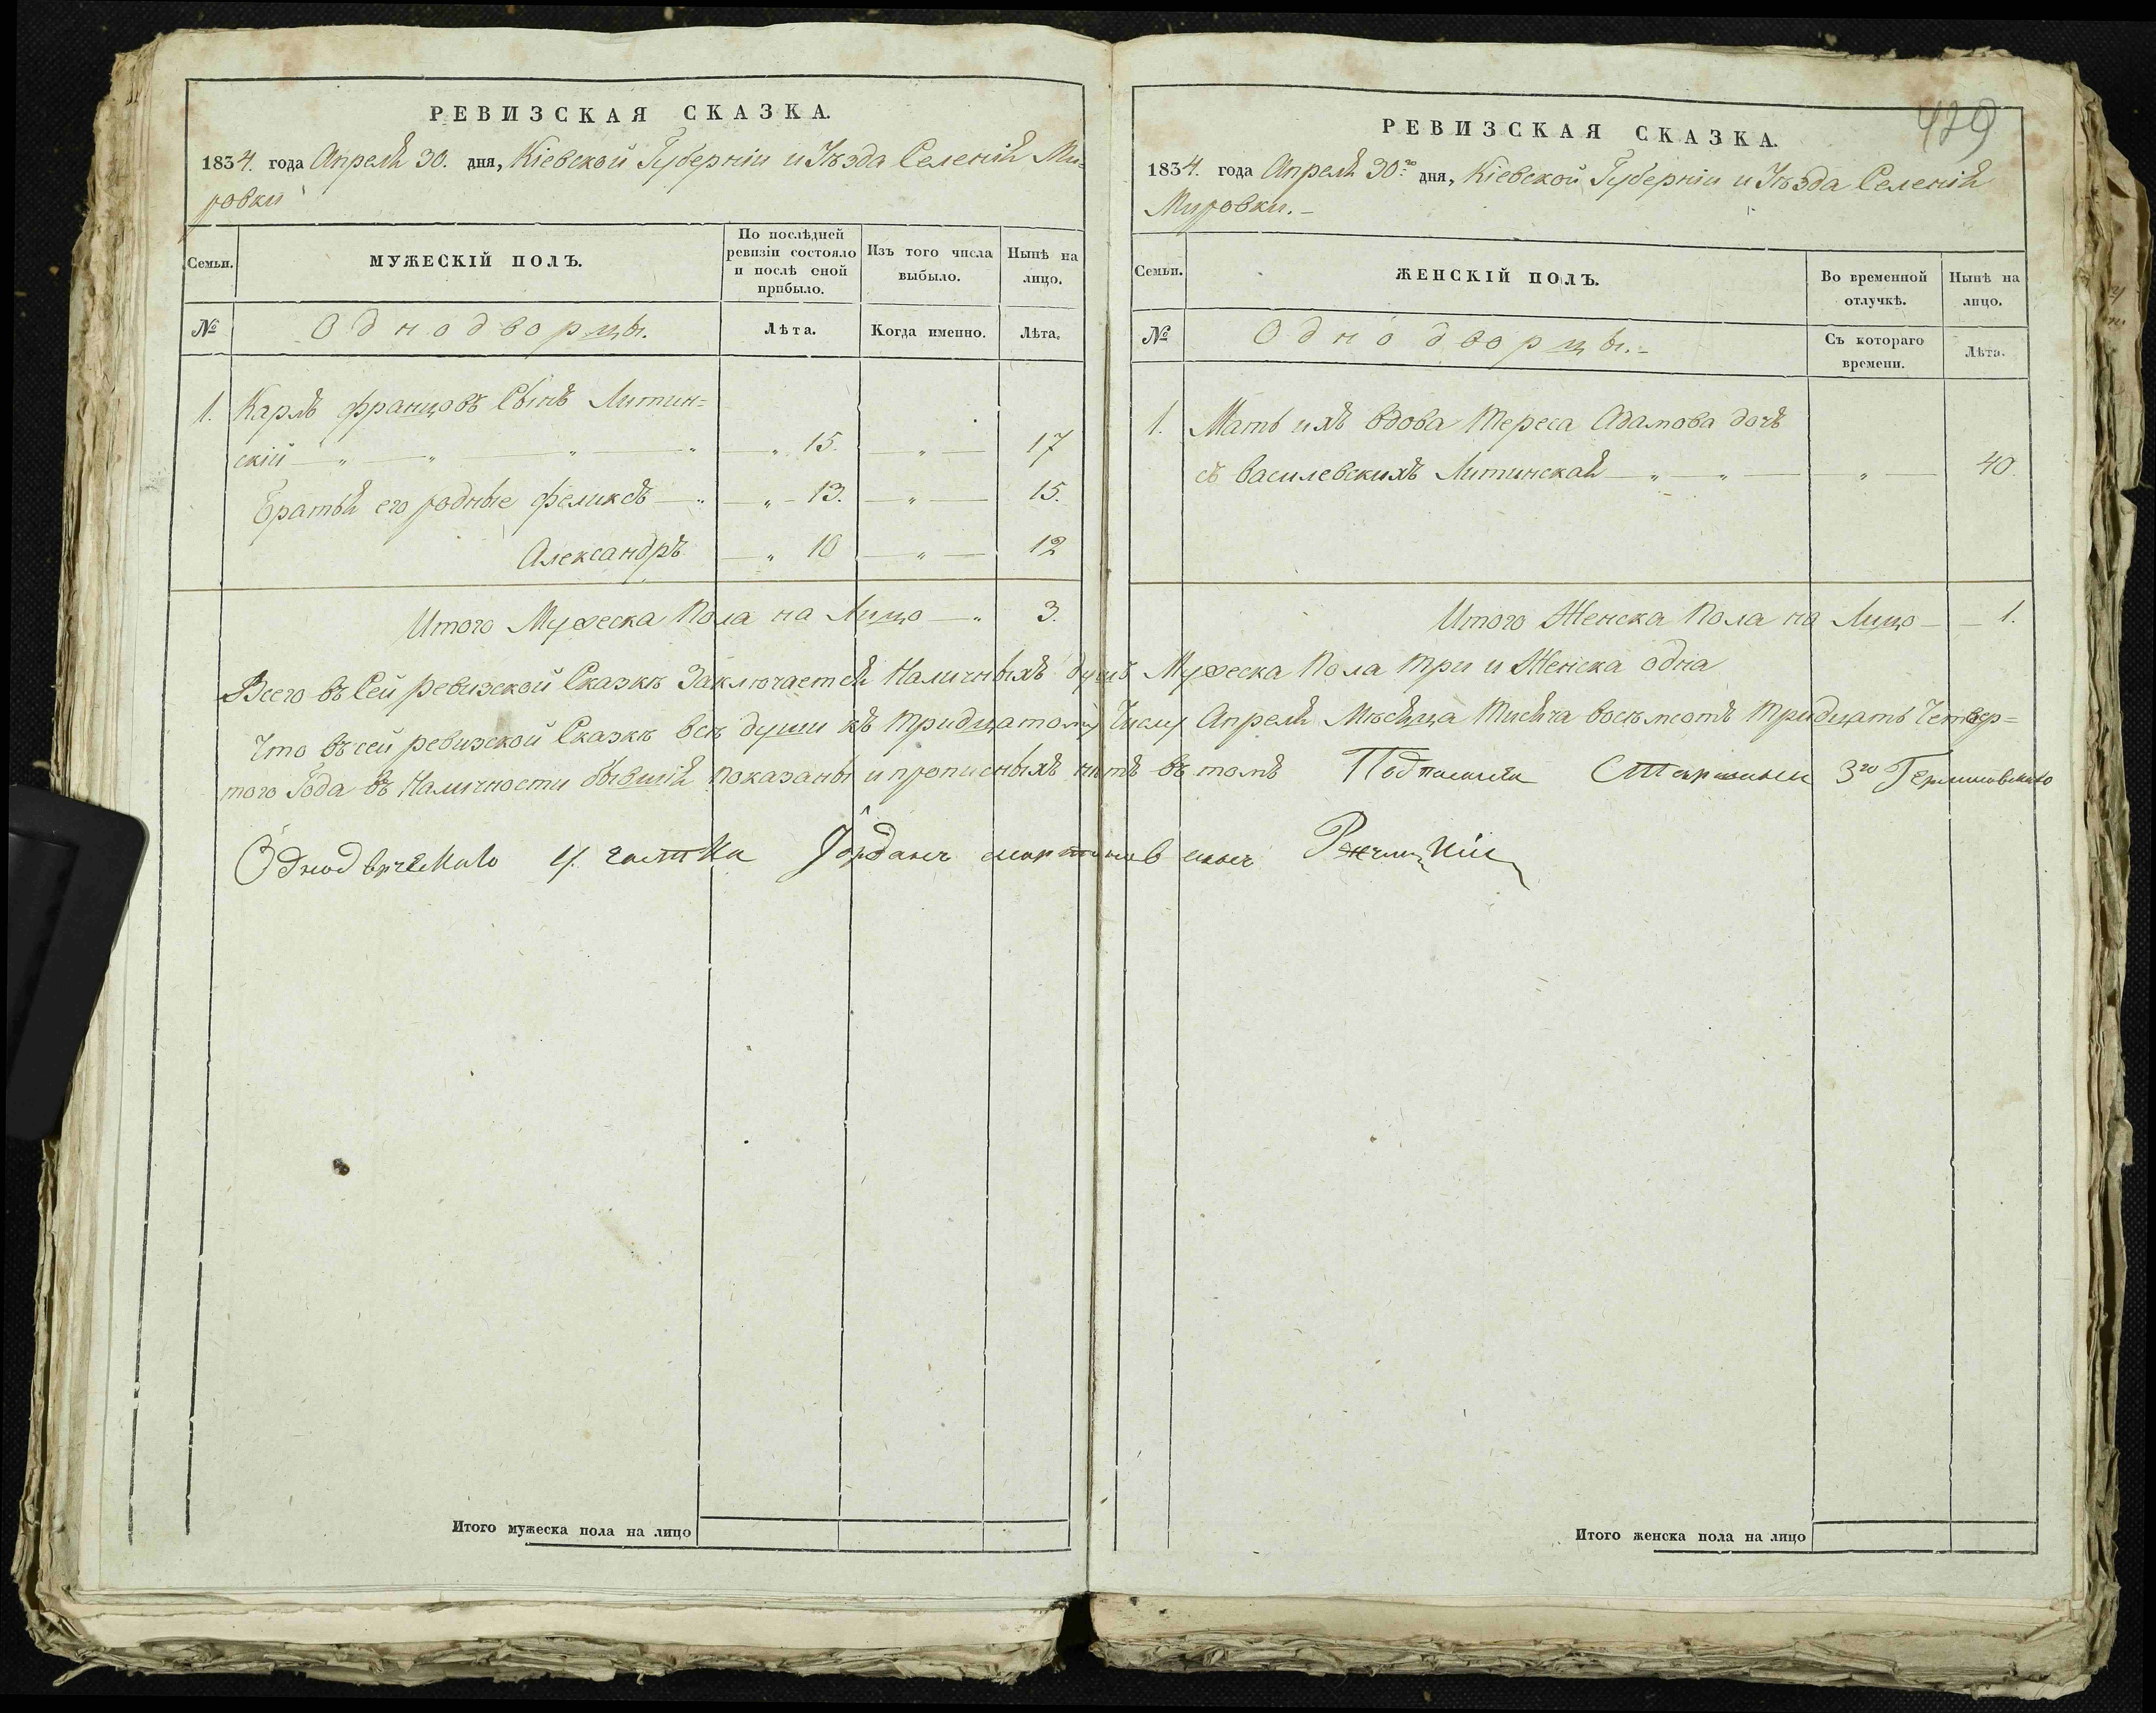 РЕВИЗСКАЯ СКАЗКА.
1834. года Апреля 30. дня, Кіевской Губерніи и Уѣзда Селенія Ми=
ровки
Семьи.
МУЖЕСКІЙ ПОЛЪ.
По послѣдней
ревизіи состояло
и послѣ оной
прибыло.
Изъ того числа
выбыло.
Нынѣ на
лицо.
№
Однодворцы.
Лѣта.
Когда именно.
Лѣта.
1. Карлъ Францовъ Сынъ Литин=
скій 15. 17
Братья его родные Феликсъ 13. 15.
Александръ 10 12
Итого Мужеска Пола на Лицо 3.
429
РЕВИЗСКАЯ СКАЗКА.
1834. года Апреля 30го дня, Кіевской Губерніи и Уѣзда Селенія
Мировки.
Семьи.
ЖЕНСКІЙ ПОЛЪ.
Во временной
отлучкѣ.
Нынѣ на
лицо.
№
Однодворцы.
Съ котораго
времени.
Лѣта.
1. Мать ихъ вдова Тереса Адамова дочь
съ Василевскихъ Литинская 40
Итого Женска Пола на Лицо 1.
Всего въ Сей ревизской Сказкѣ Заключается Наличныхъ душъ Мужеска Пола три и Женска одна
Что въ сей ревизской Сказкѣ всѣ души къ тридцатому Числу Апреля Мѣсяца Тисяча восѣмсотъ тридцать Четвер=
того Года въ Наличности бывшія показаны и прописныхъ нѣтъ въ томъ Старшины 3го
4. Іордань сынъ
Итого мужеска пола на лицо
Итого женска пола на лицо